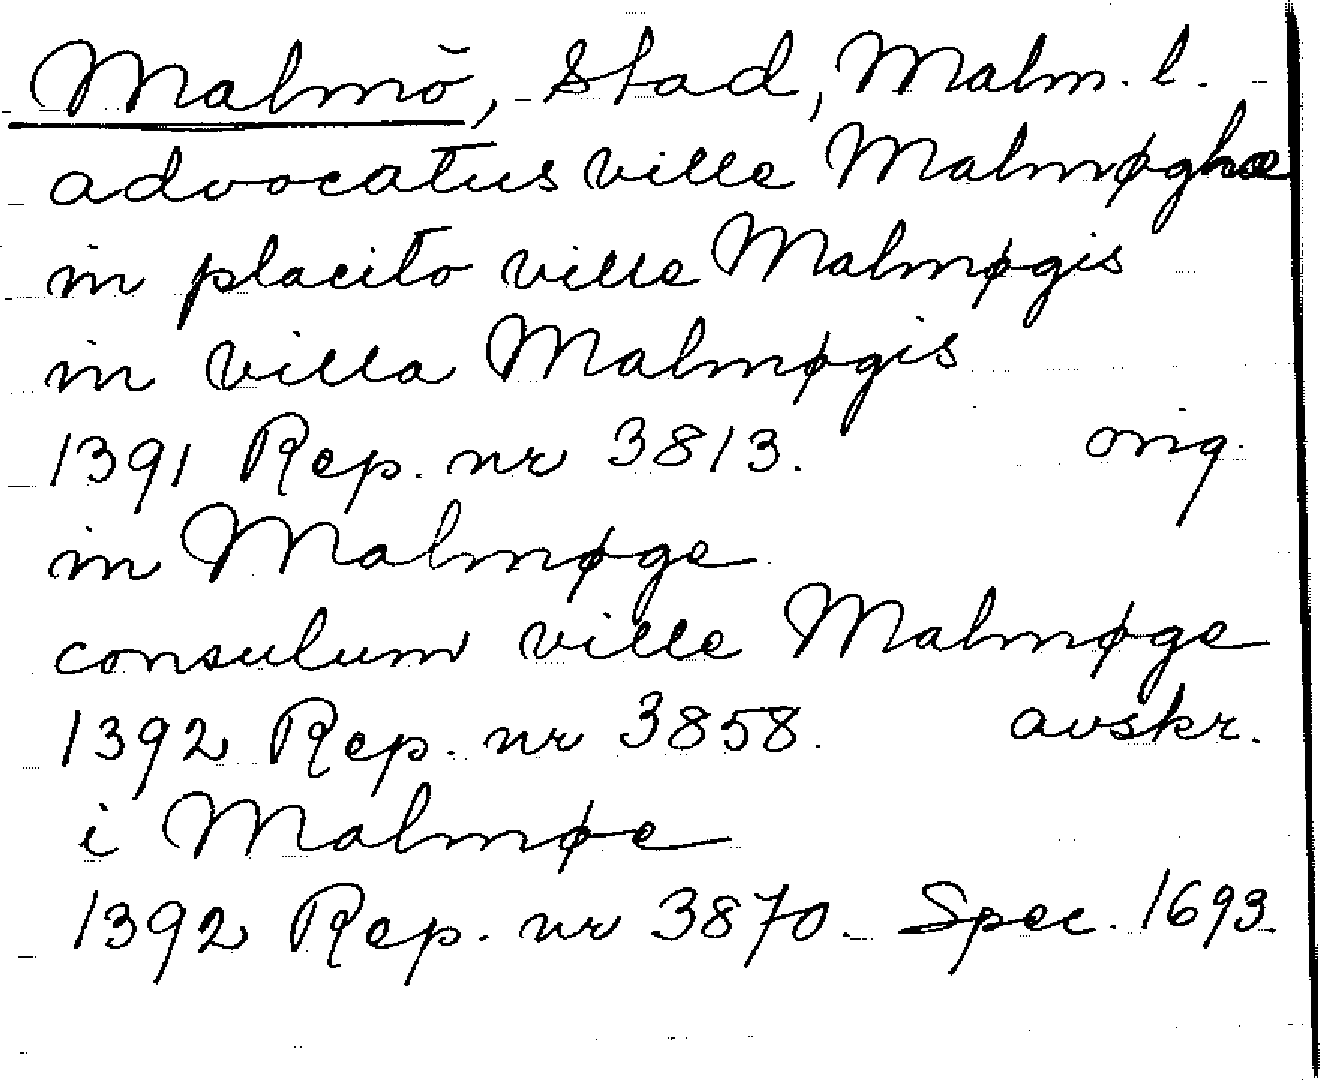 Malmö, Stad, Malm. l.
advocatus ville Malmøghæ
in placito ville Malmøgis
in villa Malmøgis
1391 Rep. nr 3813. orig.
in Malmøge
consulum ville Malmøge
1392 Rep. nr 3858. avskr.
i Malmøe
1392 Rep. nr 3870. Spec. 1693.